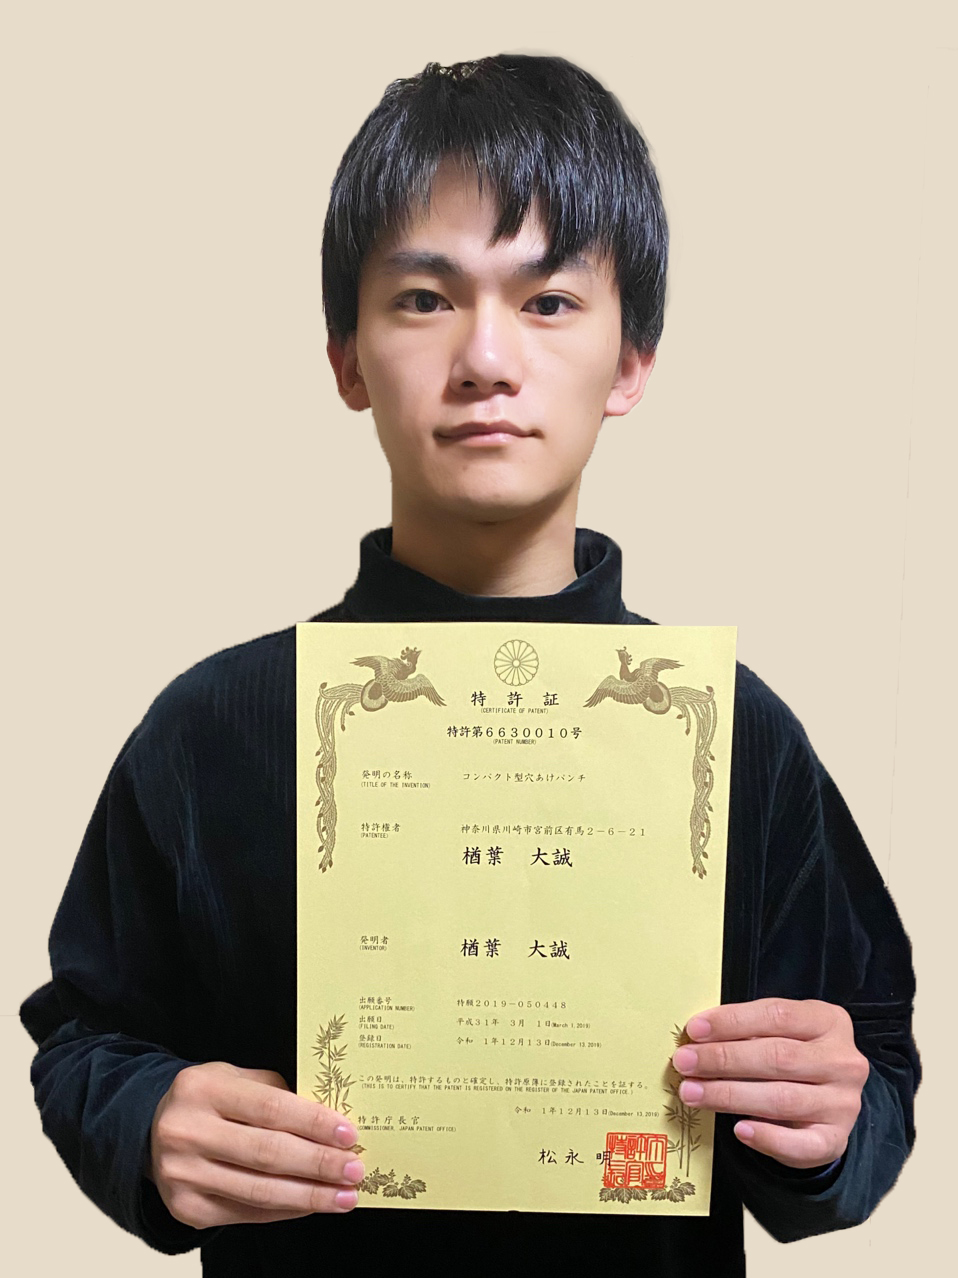 特許証
(CERTIFICATE OF PATENT)
特許第6630010号
(PATENT NUMBER)
発明の名称
(TITLE OF THE INVENTION)
コンパクト型穴あけパンチ
特許権者
(PATENTEE)
神奈川県川崎市宮前区有馬2-6-21
楢葉 大誠
発明者
(INVENTOR)
楢葉 大誠
出願番号
(APPLICATION NUMBER)
特願2019-050448
出願日
(FILING DATE)
平成31年 3月 1日(March 1,2019)
登録日
(REGISTRATION DATE)
令和 1年12月13日(December 13,2019)
この発明は、特許するものと確定し、特許原簿に登録されたことを証する。
(THIS IS TO CERTIFY THAT THE PATENT IS REGISTERED ON THE REGISTER OF THE JAPAN PATENT OFFICE.)
令和 1年12月13日(December 13,2019)
特許庁長官
(COMMISSIONER, JAPAN PATENT OFFICE)
松永 明